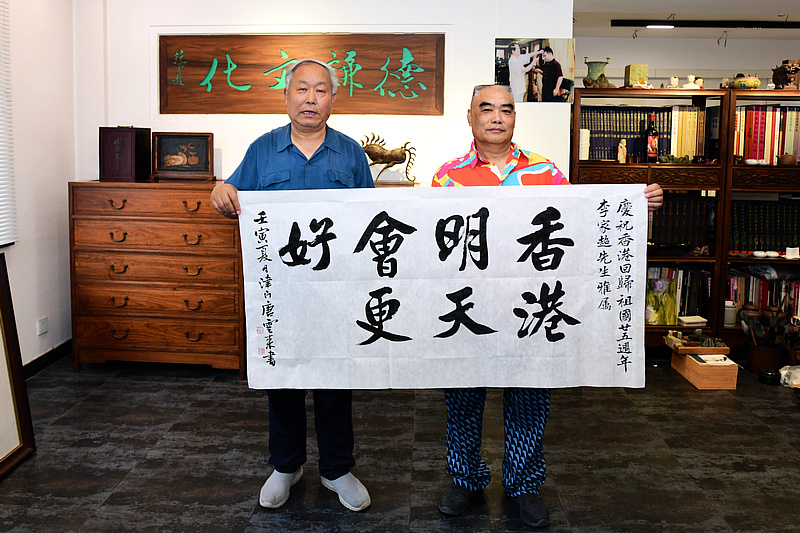 德謙文化
慶祝香港回歸祖國廿五週年
李家超先生雅属
香港
明天
會更
好
壬寅夏日津门唐雲来書